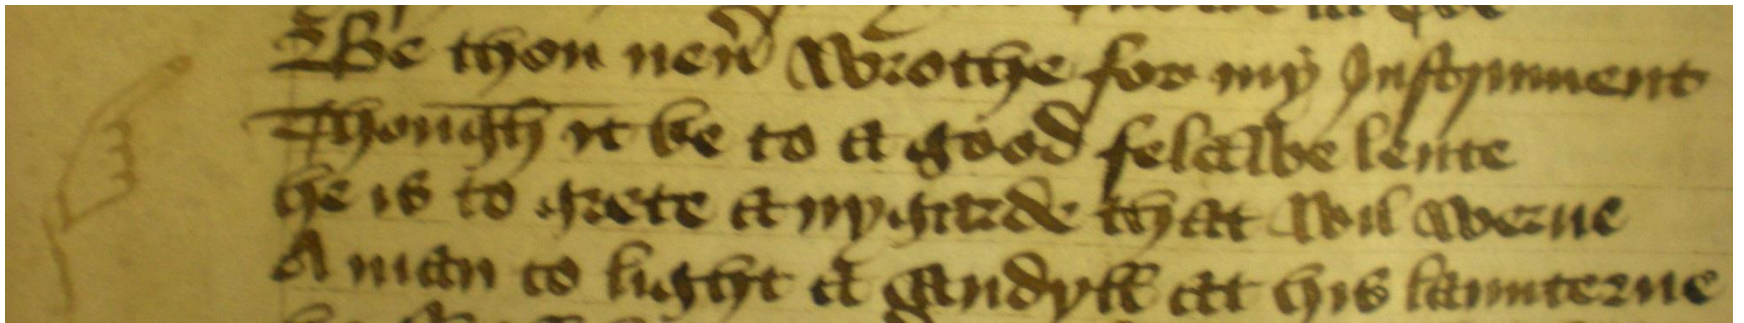 Be thou neu' wrothe for my Instrument
Though it be to a good felawe lente
he is to grete a nygarde that wil werne
A man to light a candyll at his lanterne